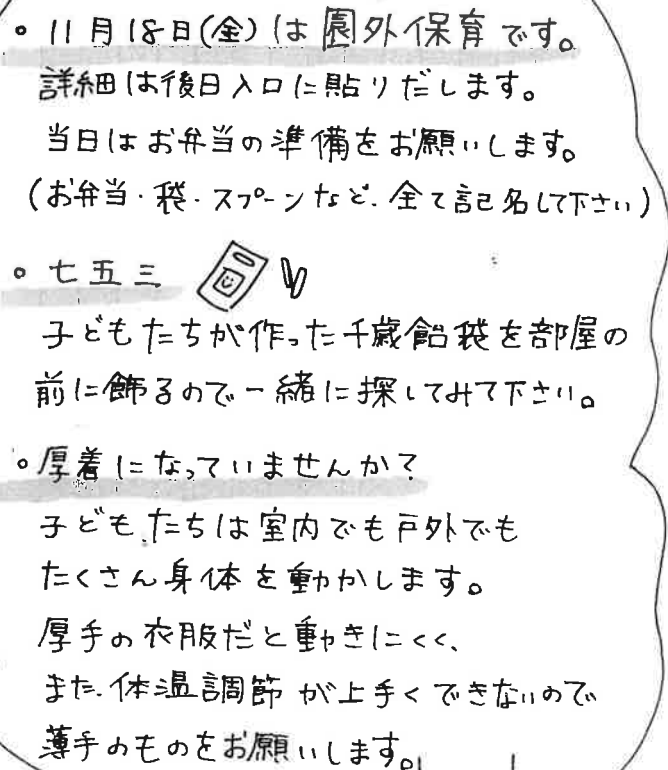 ◦ 11月18日(金)は園外保育です。
詳細は後日入口に貼りだします。
当日はお弁当の準備をお願いします。
(お弁当・袋・スプーンなど、全て記名して下さい)
◦ 七五三
子どもたちが作った千歳飴袋を部屋の
前に飾るので一緒に探してみて下さい。
◦ 厚着になっていませんか?
子どもたちは室内でも戸外でも
たくさん身体を動かします。
厚手の衣服だと動きにくく、
また、体温調節が上手くできないので
薄手のものをお願いします。